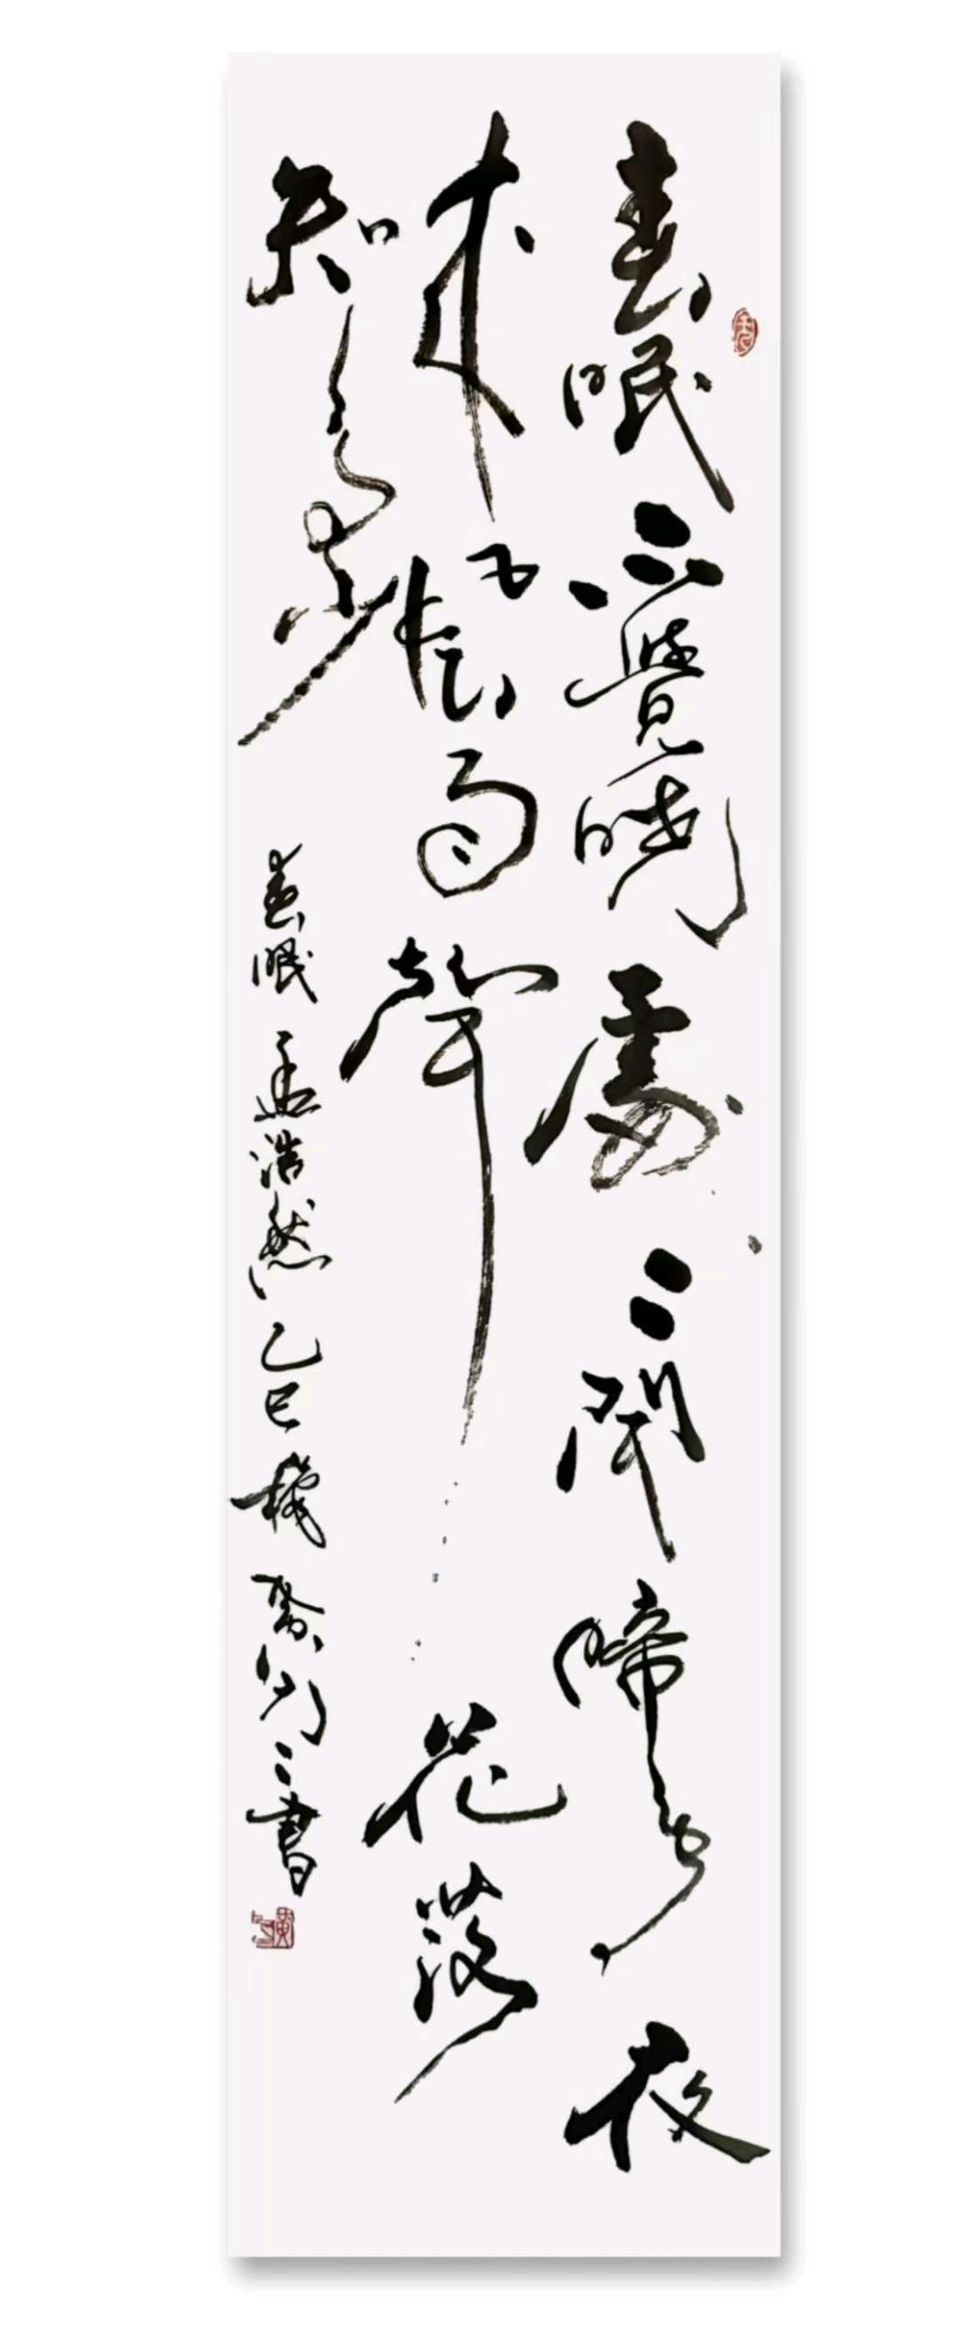 春眠不覺曉處〻聞啼鳥夜
來風雨聲花落
知多少
春眠 孟浩然 乙巳 書